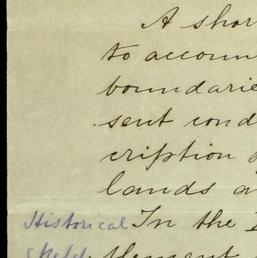 A shor
to accoun
boundarie
sent cond
cription
lands a
Historical In the
sketch tlement